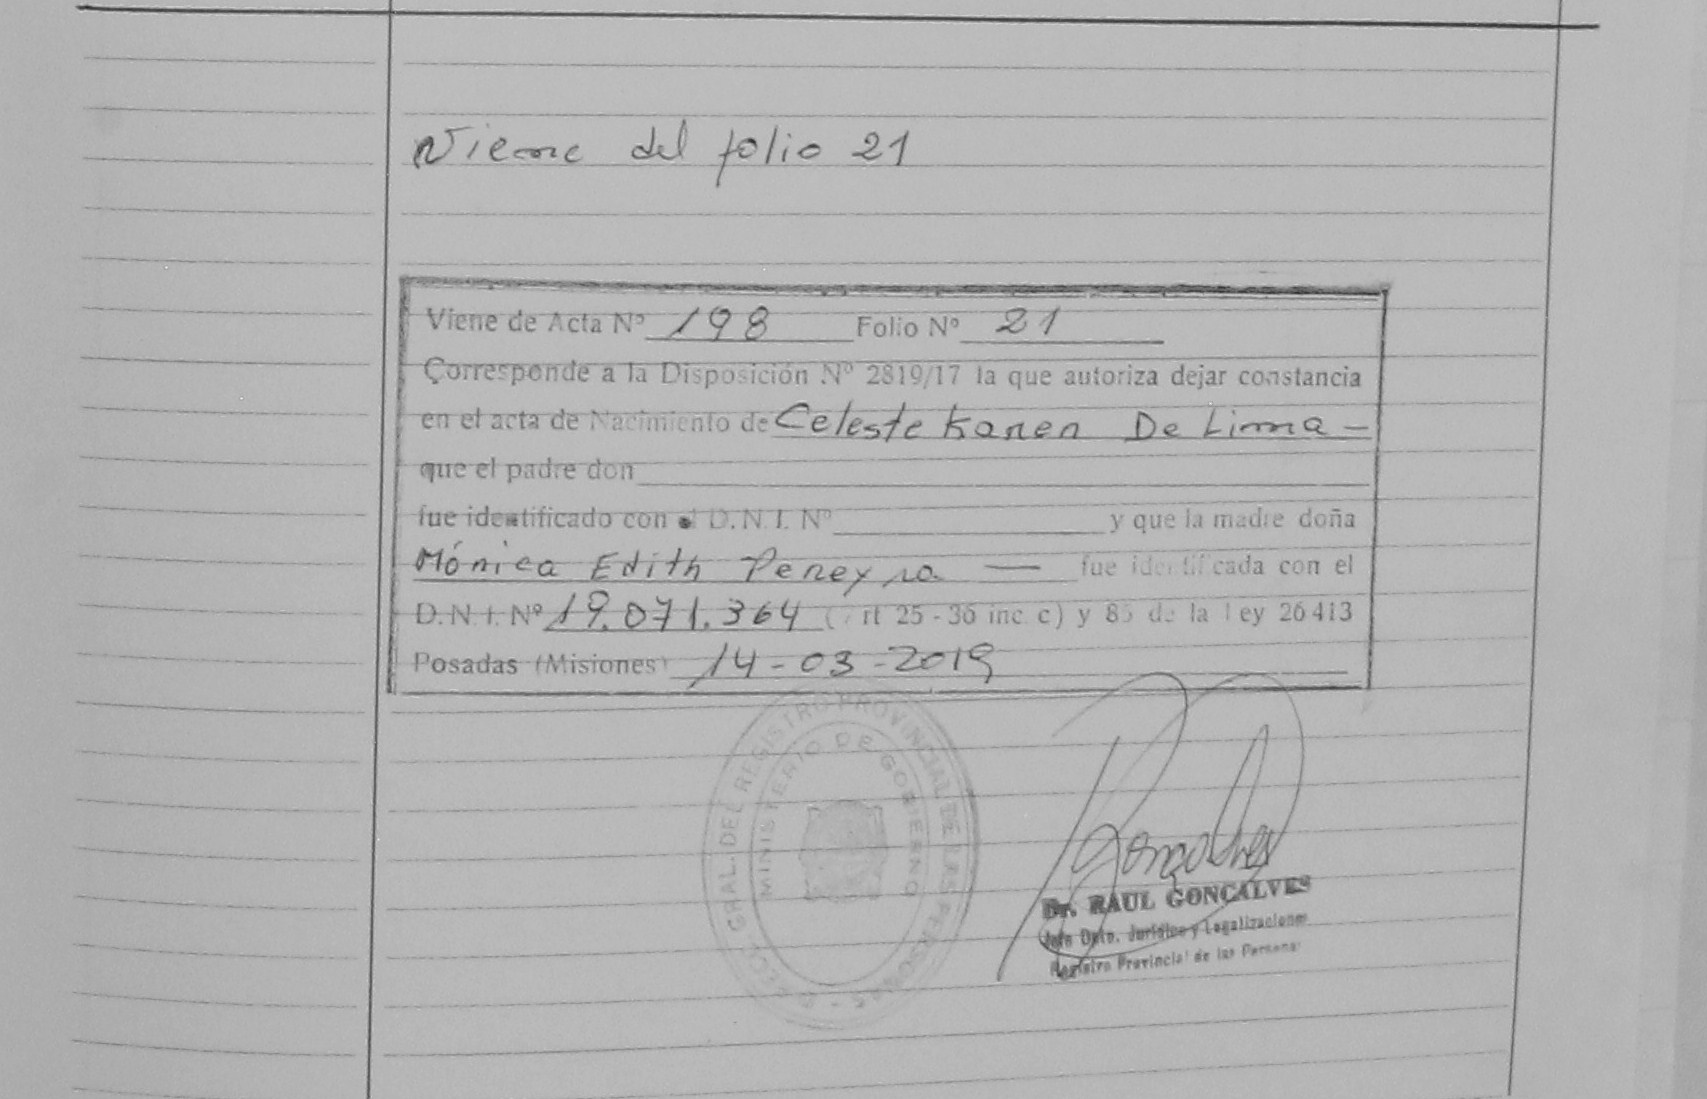 Viene del folio 21
Viene de Acta Nº 198 Folio Nº 21
Corresponde a la Disposición Nº 2819/17 la que autoriza dejar constancia
en el acta de Nacimiento de Celeste Karen De Lima -
que el padre don
fue identificado con el D.N.I. Nº y que la madre doña
Mónica Edith Pereyra — fue identificada con el
D.N.I. Nº 19.071.364 (Art 25 - 36 inc. c) y 85 de la Ley 26413
Posadas (Misiones) 14-03-2019
GRAL. DEL REGISTRO PROVINCIAL DE LAS PERSONAS
MINISTERIO DE GOBIERNO
Dr. RAUL GONCALVES
Jefe Dpto. Jurídico y Legalizaciones
Registro Provincial de las Personas